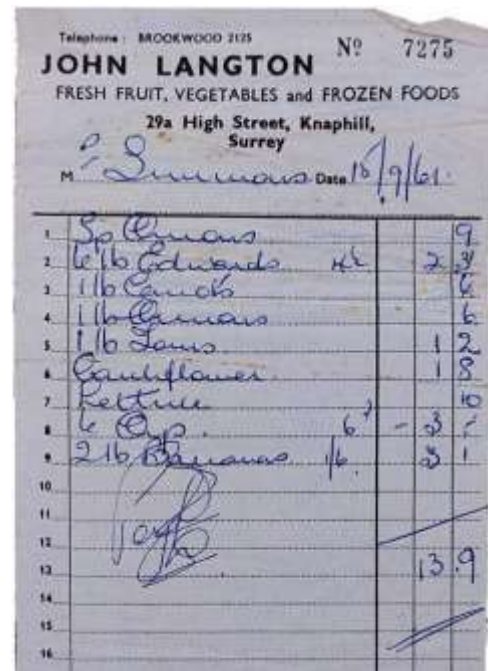 Telephone: BROOKWOOD 2125 Nº 7275
JOHN LANGTON
FRESH FRUIT, VEGETABLES and FROZEN FOODS
29a High Street, Knaphill,
Surrey
M Simmons Date /9/61.
1 Sp Onions 9
2 6 lb Edwards 2 3
3 1 lb Carrots 6
4 1 lb Onions 6
5 1 lb Toms 1 2
6 Cauliflower 1 8
7 Lettuce 10
8 6 6 - 3 -
9 2 lb Bananas 1/6 3
10
11
12
13 13.9
14
15
16